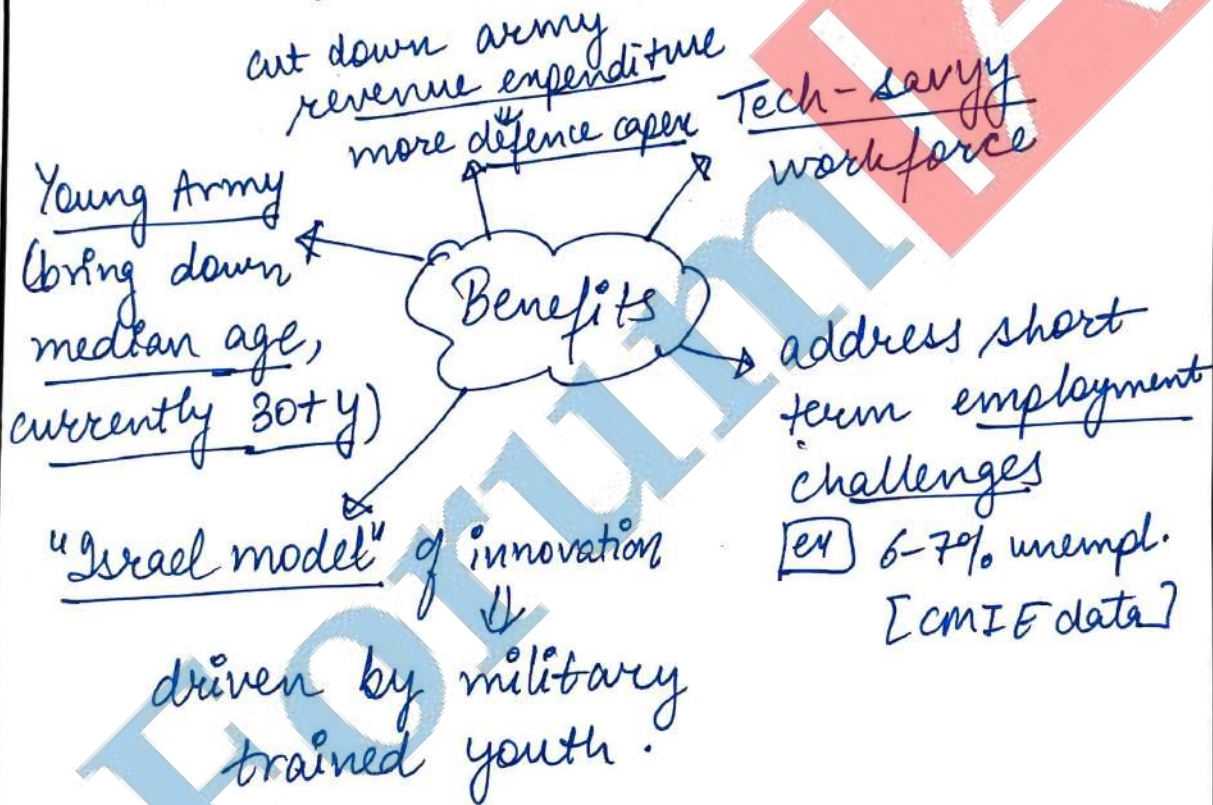 cut down army
revenue expenditure
⇓
more defence capex
Tech-savyy
workforce
Young Army
(bring down
median age,
currently 30+ y)
Benefits
address short
term employment
challenges
ex 6-7% unempl.
[CMIE data]
"Israel model" of innovation
⇓
driven by military
trained youth.
Forum